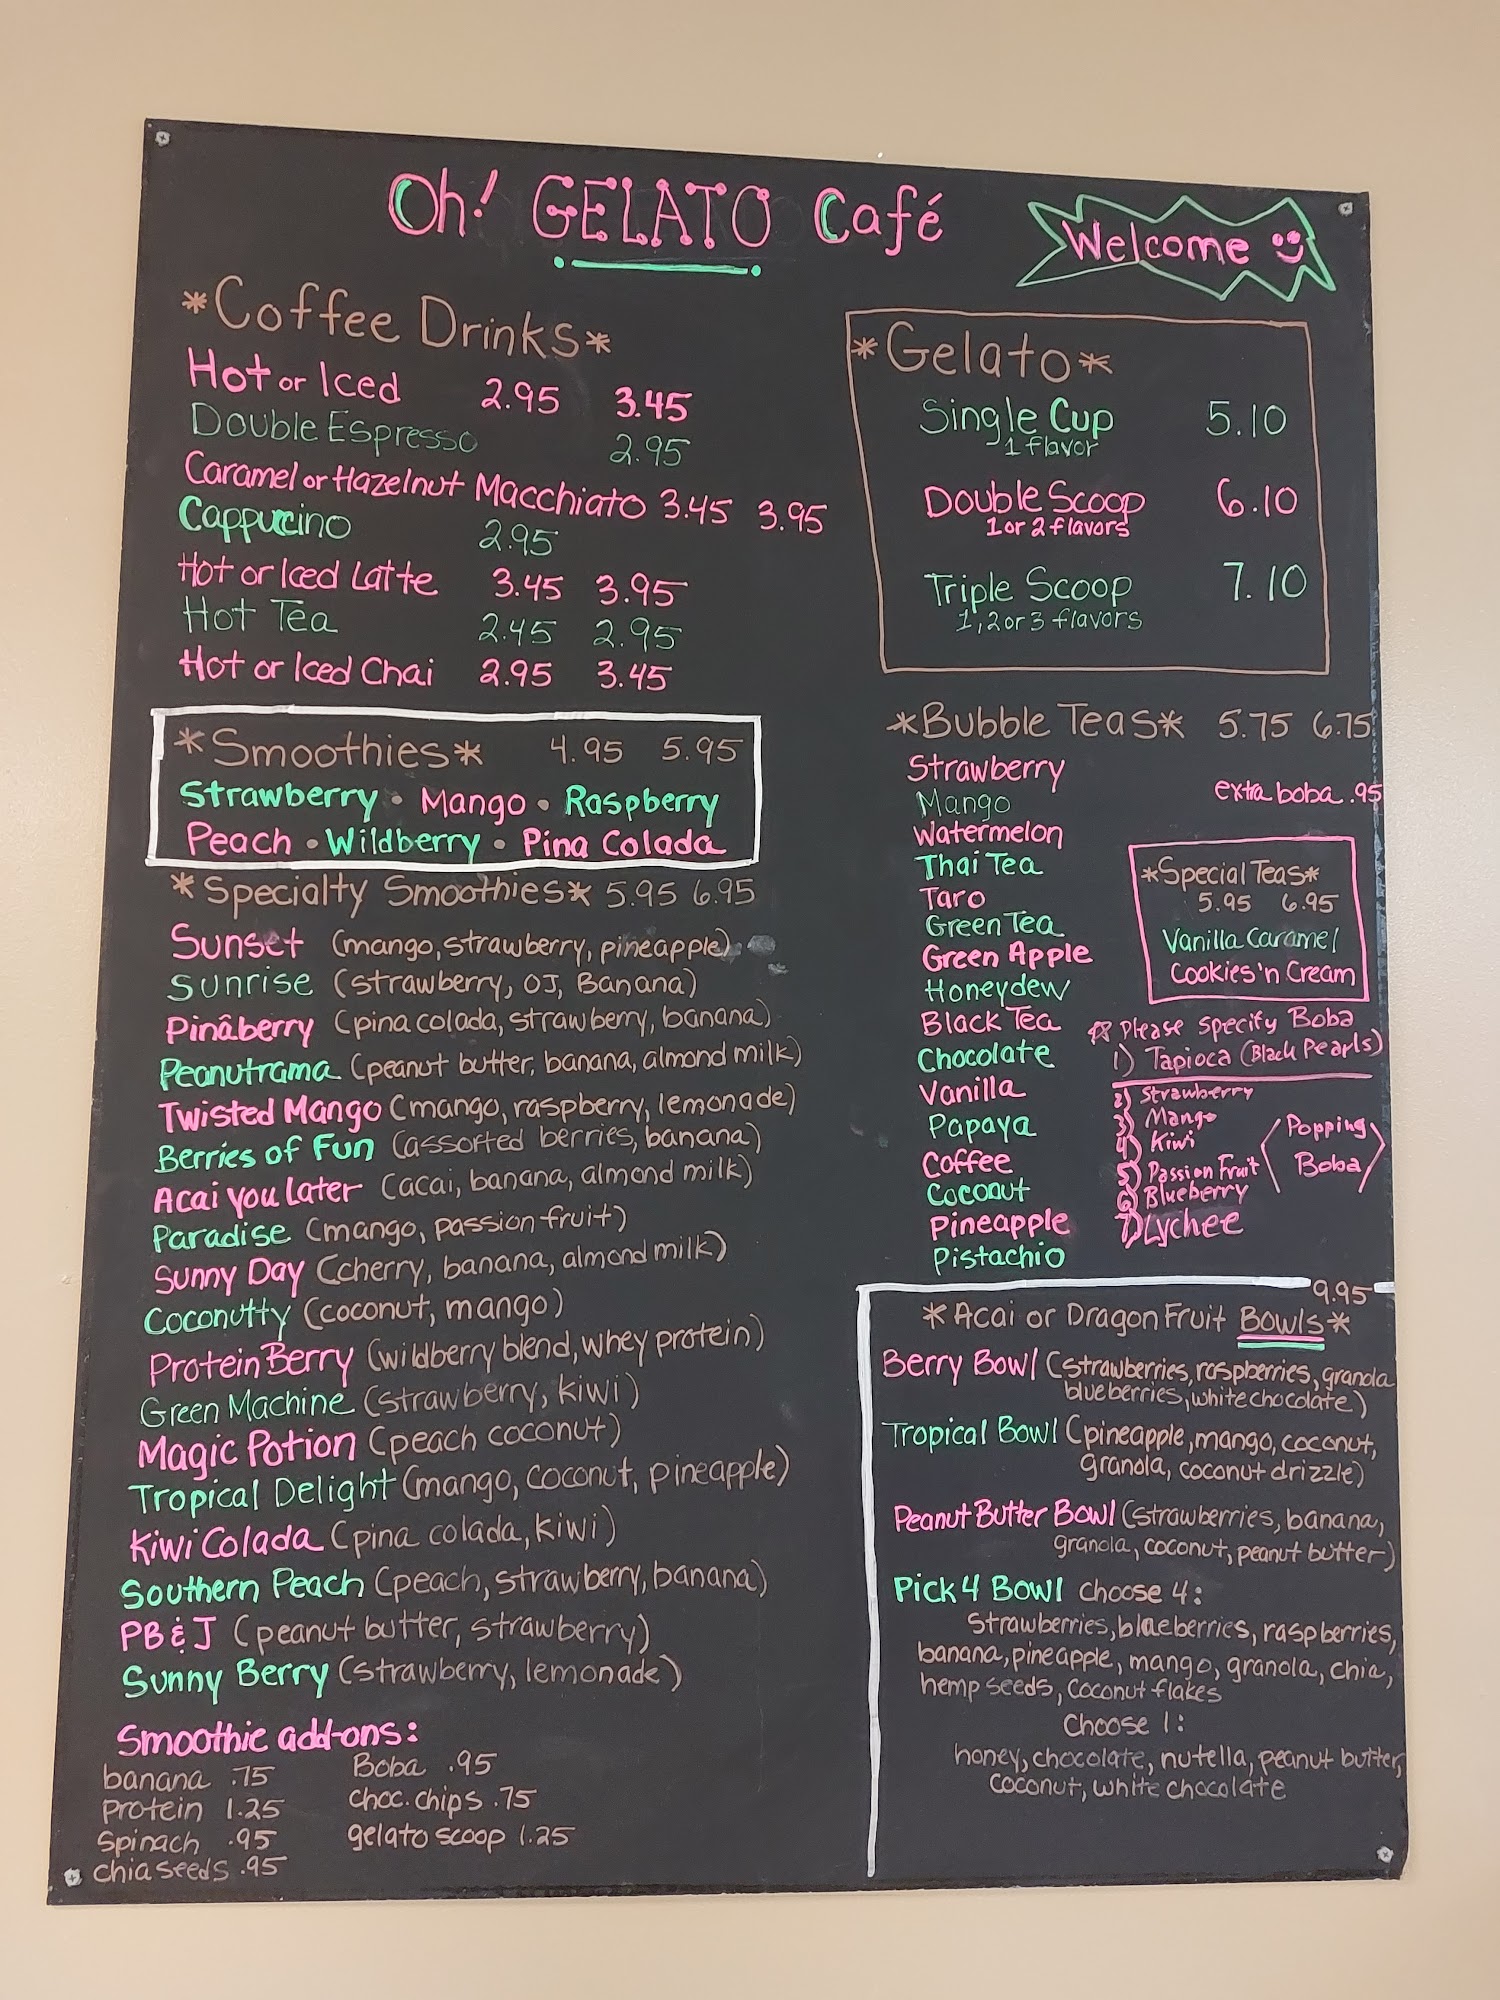 Oh! GELATO Café
Welcome
*Coffee Drinks*
Hot or Iced 2.95 3.45
Double Espresso 2.95
Caramel or Hazelnut Macchiato 3.45 3.95
Cappuccino 2.95
Hot or Iced Latte 3.45 3.95
Hot Tea 2.45 2.95
Hot or Iced Chai 2.95 3.45
*Smoothies* 4.95 5.95
Strawberry • Mango • Raspberry
Peach • Wildberry • Pina Colada
*Specialty Smoothies* 5.95 6.95
Sunset (mango, strawberry, pineapple)
Sunrise (strawberry, OJ, Banana)
Pinâberry (pina colada, strawberry, banana)
Peanutrama (peanut butter, banana, almond milk)
Twisted Mango (mango, raspberry, lemonade)
Berries of Fun (assorted berries, banana)
Acai you Later (acai, banana, almond milk)
Paradise (mango, passion fruit)
Sunny Day (cherry, banana, almond milk)
Coconutty (coconut, mango)
Protein Berry (wildberry blend, whey protein)
Green Machine (strawberry, kiwi)
Magic Potion (peach coconut)
Tropical Delight (mango, coconut, pineapple)
Kiwi Colada (pina colada, kiwi)
Southern Peach (peach, strawberry, banana)
PB & J (peanut butter, strawberry)
Sunny Berry (strawberry, lemonade)
Smoothie add-ons:
banana .75
protein 1.25
spinach .95
chia seeds .95
Boba .95
choc. chips .75
gelato scoop 1.25
*Gelato*
Single Cup 5.10
1 flavor
Double Scoop 6.10
1 or 2 flavors
Triple Scoop 7.10
1, 2 or 3 flavors
*Bubble Teas* 5.75 6.75
extra boba .95
Strawberry
Mango
Watermelon
Thai Tea
Taro
Green Tea
Green Apple
Honeydew
Black Tea
Chocolate
Vanilla
Papaya
Coffee
Coconut
Pineapple
Pistachio
*Special Teas*
5.95 6.95
Vanilla Caramel
Cookies 'n Cream
☆ Please specify Boba
1) Tapioca (Black Pearls)
2) Strawberry
3) Mango
4) Kiwi
5) Passion Fruit
6) Blueberry
7) Lychee
Popping
Boba
9.95
*Acai or Dragon Fruit Bowls*
Berry Bowl (strawberries, raspberries, granola
blueberries, white chocolate)
Tropical Bowl (pineapple, mango, coconut,
granola, coconut drizzle)
Peanut Butter Bowl (strawberries, banana,
granola, coconut, peanut butter)
Pick 4 Bowl choose 4:
strawberries, blueberries, raspberries,
banana, pineapple, mango, granola, chia,
hemp seeds, coconut flakes
choose 1:
honey, chocolate, nutella, peanut butter,
coconut, white chocolate